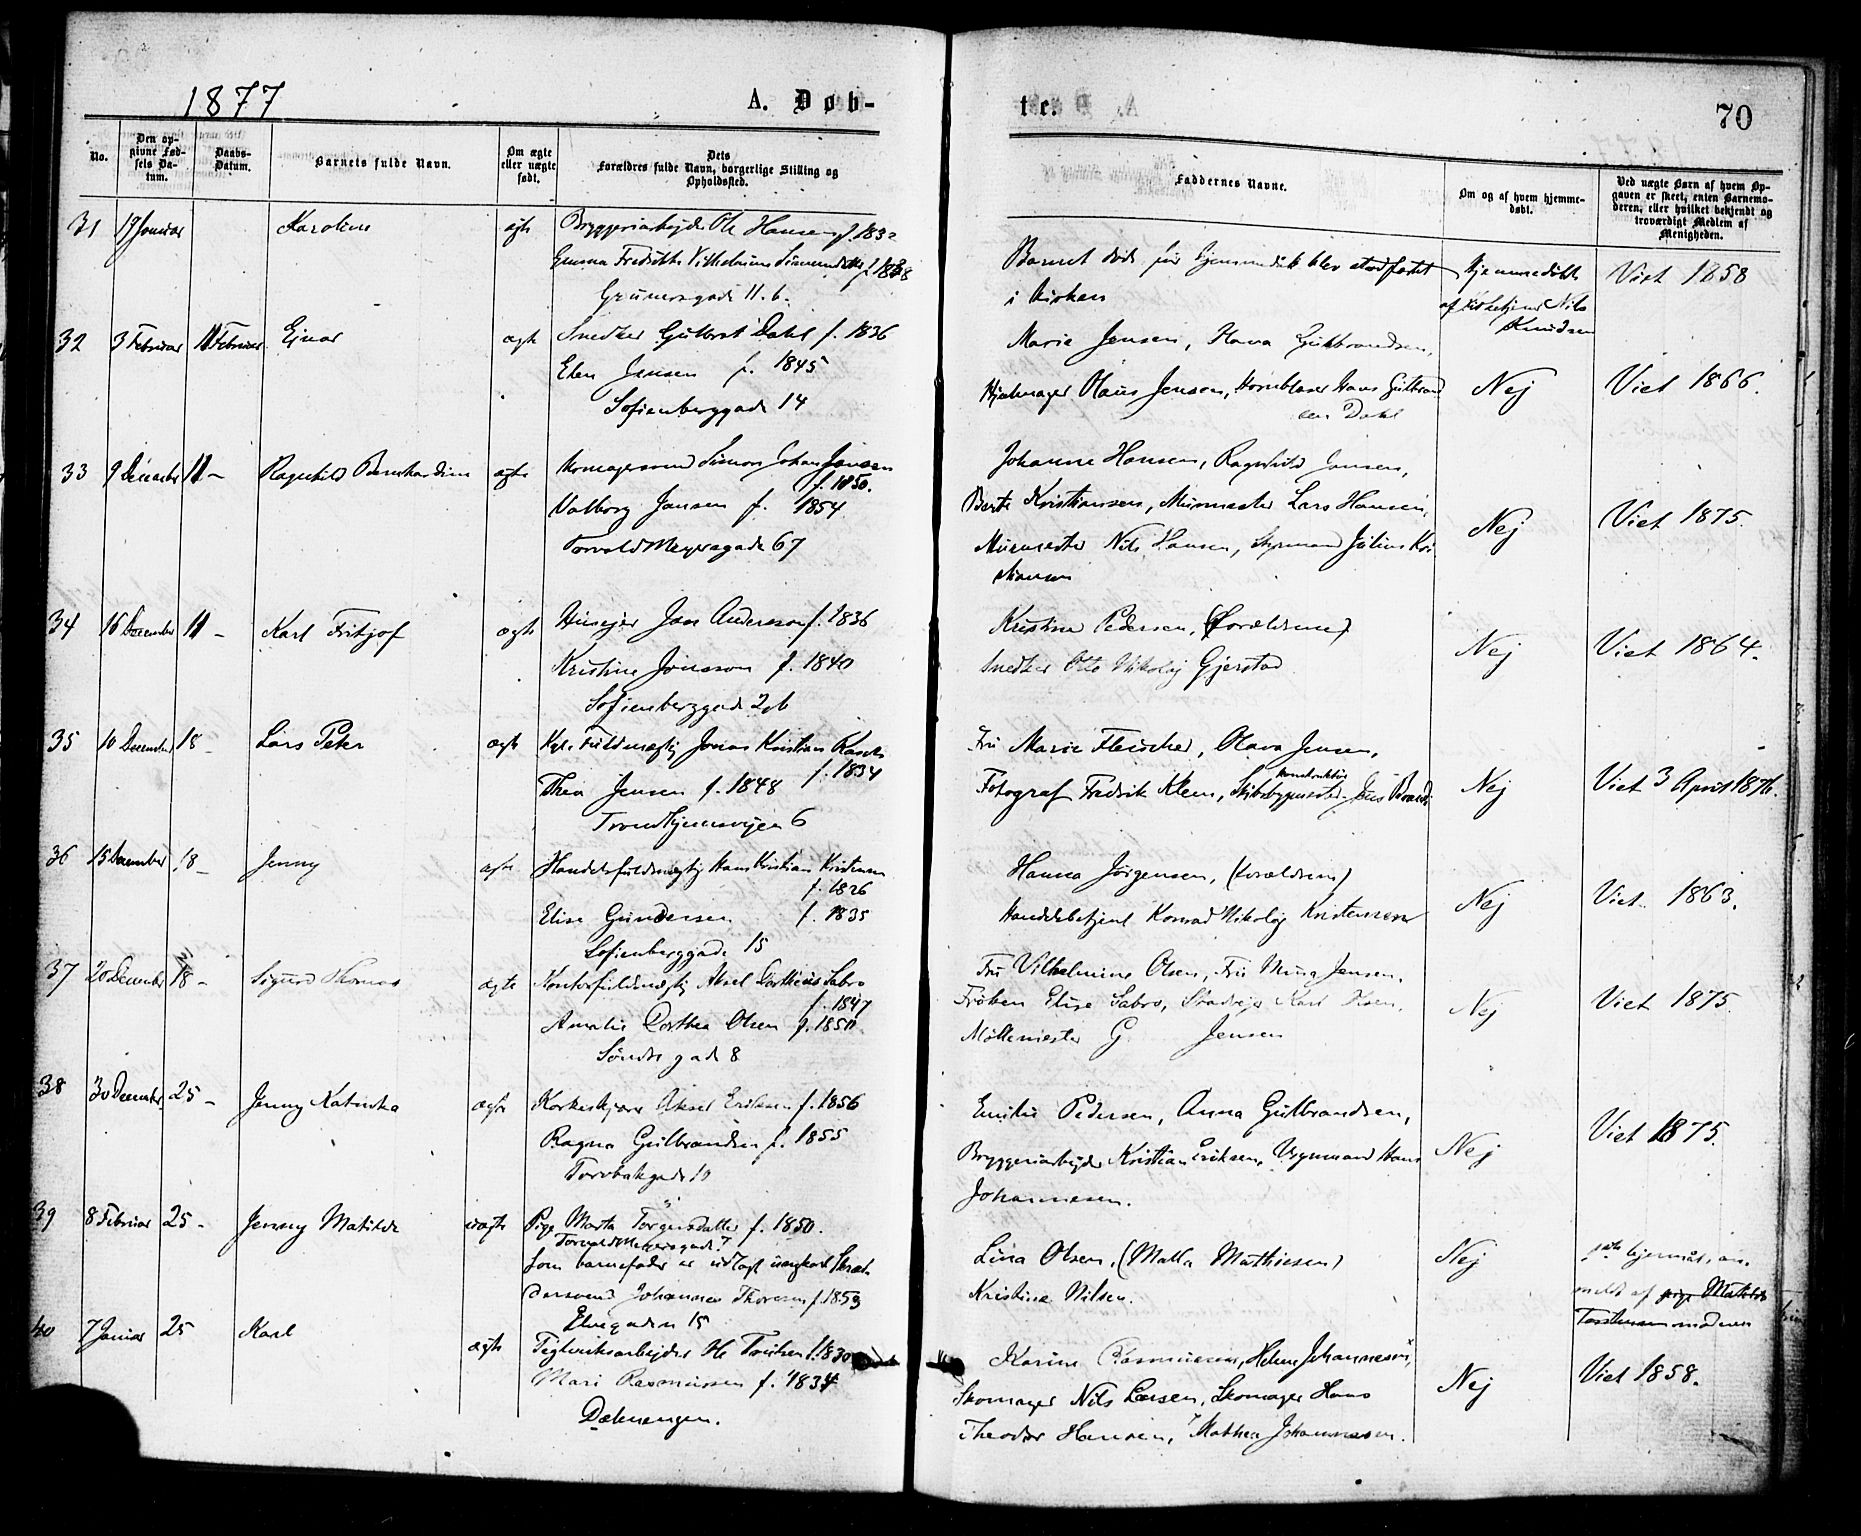 1877
A. Døb-
te.
70
No.
Den op-
givne Fød-
sels Da-
tum.
Daabs-
Datum.
Barnets fulde Navn.
Om ægte
eller uægte
født.
Dets
Forældres fulde Navn, borgerlige Stilling og
Opholdssted.
Faddernes Navne.
Om og af hvem hjemme-
døbt.
Ved uægte Børn af hvem Op-
gaven er skeet, enten Barnemo-
deren, eller hvilket bekjendt og
troværdigt Medlem af
Menigheden.
31 17 Januar Karoline ægte Bryggeriarbejder Ole Hansen f. 1832
Emma Fredrikke Vilhelmine f. 1838
Grünersgade 11. b.
Barnet døde før hjemmedåb blev stadfæstet
i Kirken
Hjemmedøbt
af Kirketjener Nils
Knudsen
Viet 1858
32 3 Februar 11 Februar Ejnar ægte Snedker Gulbrst Dahl f. 1836
Elen Jensen f. 1845
Sofienberggade 14
Marie Jensen, Hana Gulbrandsen,
Hjulmager Olaus Jensen, Hornblæser Hans Gulbrand
sen Dahl
Nej
Viet 1866.
33 9 December 11 - Ragnhild Bernhardine ægte Simon Johan Jansen
f. 1850.
Valborg Jansen f. 1854
Torvald Meyersgade 67
Johanne Hansen, Ragnhild Jansen,
Berte Kristiansen, Murmester Lars Hansen,
Murmester Nils Hansen, Styrmand Julius Kri
stiansen
Nej
Viet 1875.
34 16 December 11 - Karl Fritjof ægte Husejer Jan Andersson f. 1836
Kristine Jonsson f. 1840
Sofienberggade 26
Kristine Pedersen, (Forældrene)
Snedker Otto Nikolaj Gjerstad
Nej
Viet 1864.
35 10 December 18 - Lars Peter ægte Kgl. Fuldmægtig Jonas Kristian Rasch
f. 1834
Thea Jensen f. 1848
Trondhjemsvejen 6
Fru Marie Fleischer, Olava Jensen,
konstruktør
Fotograf Fredrik Klem, Skibsbygmester Jens Brandt
Nej
Viet 3 April 1876.
36 15 December 18 - Jenny ægte Handelsfuldmægtig Hans Kristian Kristensen
f. 1826
Elise Gundersen f. 1835
Sofienberggade 15
Hanna Jørgensen, (Forældrene)
Handelsbetjent Konrad Nikolaj Kristensen
Nej
Viet 1863.
37 20 December 18 - Sigurd Thomas ægte Kontorfuldmægtig Aksel Dorthæus Sabro
f. 1847
Amalie Dorthea Olsen f. 1850.
Søndre gade 8
Fru Vilhelmine Olsen, Fru Mina Jensen,
Frøken Elise Sabro, Karl Olsen,
Møllemester G Jensen
Nej
Viet 1875.
38 30 December 25 - Jenny Katinka ægte Korkeskjærer Aksel Eriksen f. 1856
Ragna Gulbrandsen f. 1855
Torvbakgade 10
Emilie Pedersen, Anna Gulbrandsen,
Bryggeriarbejder Kristian Eriksen, Vognmand Hans
Johannesen.
Nej
Viet 1875.
39 8 Februar 25 - Jenny Matilde uægte Pige Marta Torgersdatter f. 1850.
Torvald Meyersgade 7
Som barnefader er udlagt ungkarl Skræd-
dersvend Johannes Thoresen f. 1853
Elvegaden 15
Lina Olsen, (Malla Mathiesen)
Kristine Nilsen.
Nej
lejermål, an-
meldt af pige Matilde
Torstensen moderen
40 7 Januar 25 Karl ægte Teglverksarbejder Ole Poulsen f. 1830
Mari Rasmussen f. 1834
Dælenengen.
Karine Rasmussen, Helene Johannesen,
Skomager Nils Larsen, Skomager Hans
Theodor Hansen, Mathea Johannesen.
Nej
Viet 1858.